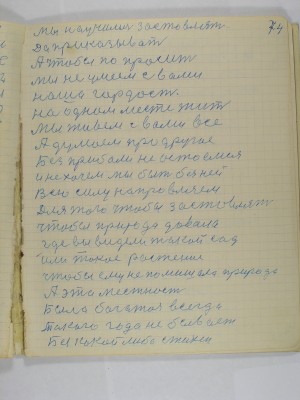 74
мы научилис заставлят
Да приказыват
А чтобы по просит
мы не умеем с вами
наша гордост
на одном месте жит
Мы живем с вами все
А думаем при другое
Без прибали не остоемся
и нехочем мы быт бедней
Всю силу напровляем
Для того чтобы заставлят
чтобы природа довала
где вы видели такой сад
или такое растение
чтобы ему не помишала природа
А эта местност
Была богатоя всегда
Такого года не бывает
Без какой либо стихеи